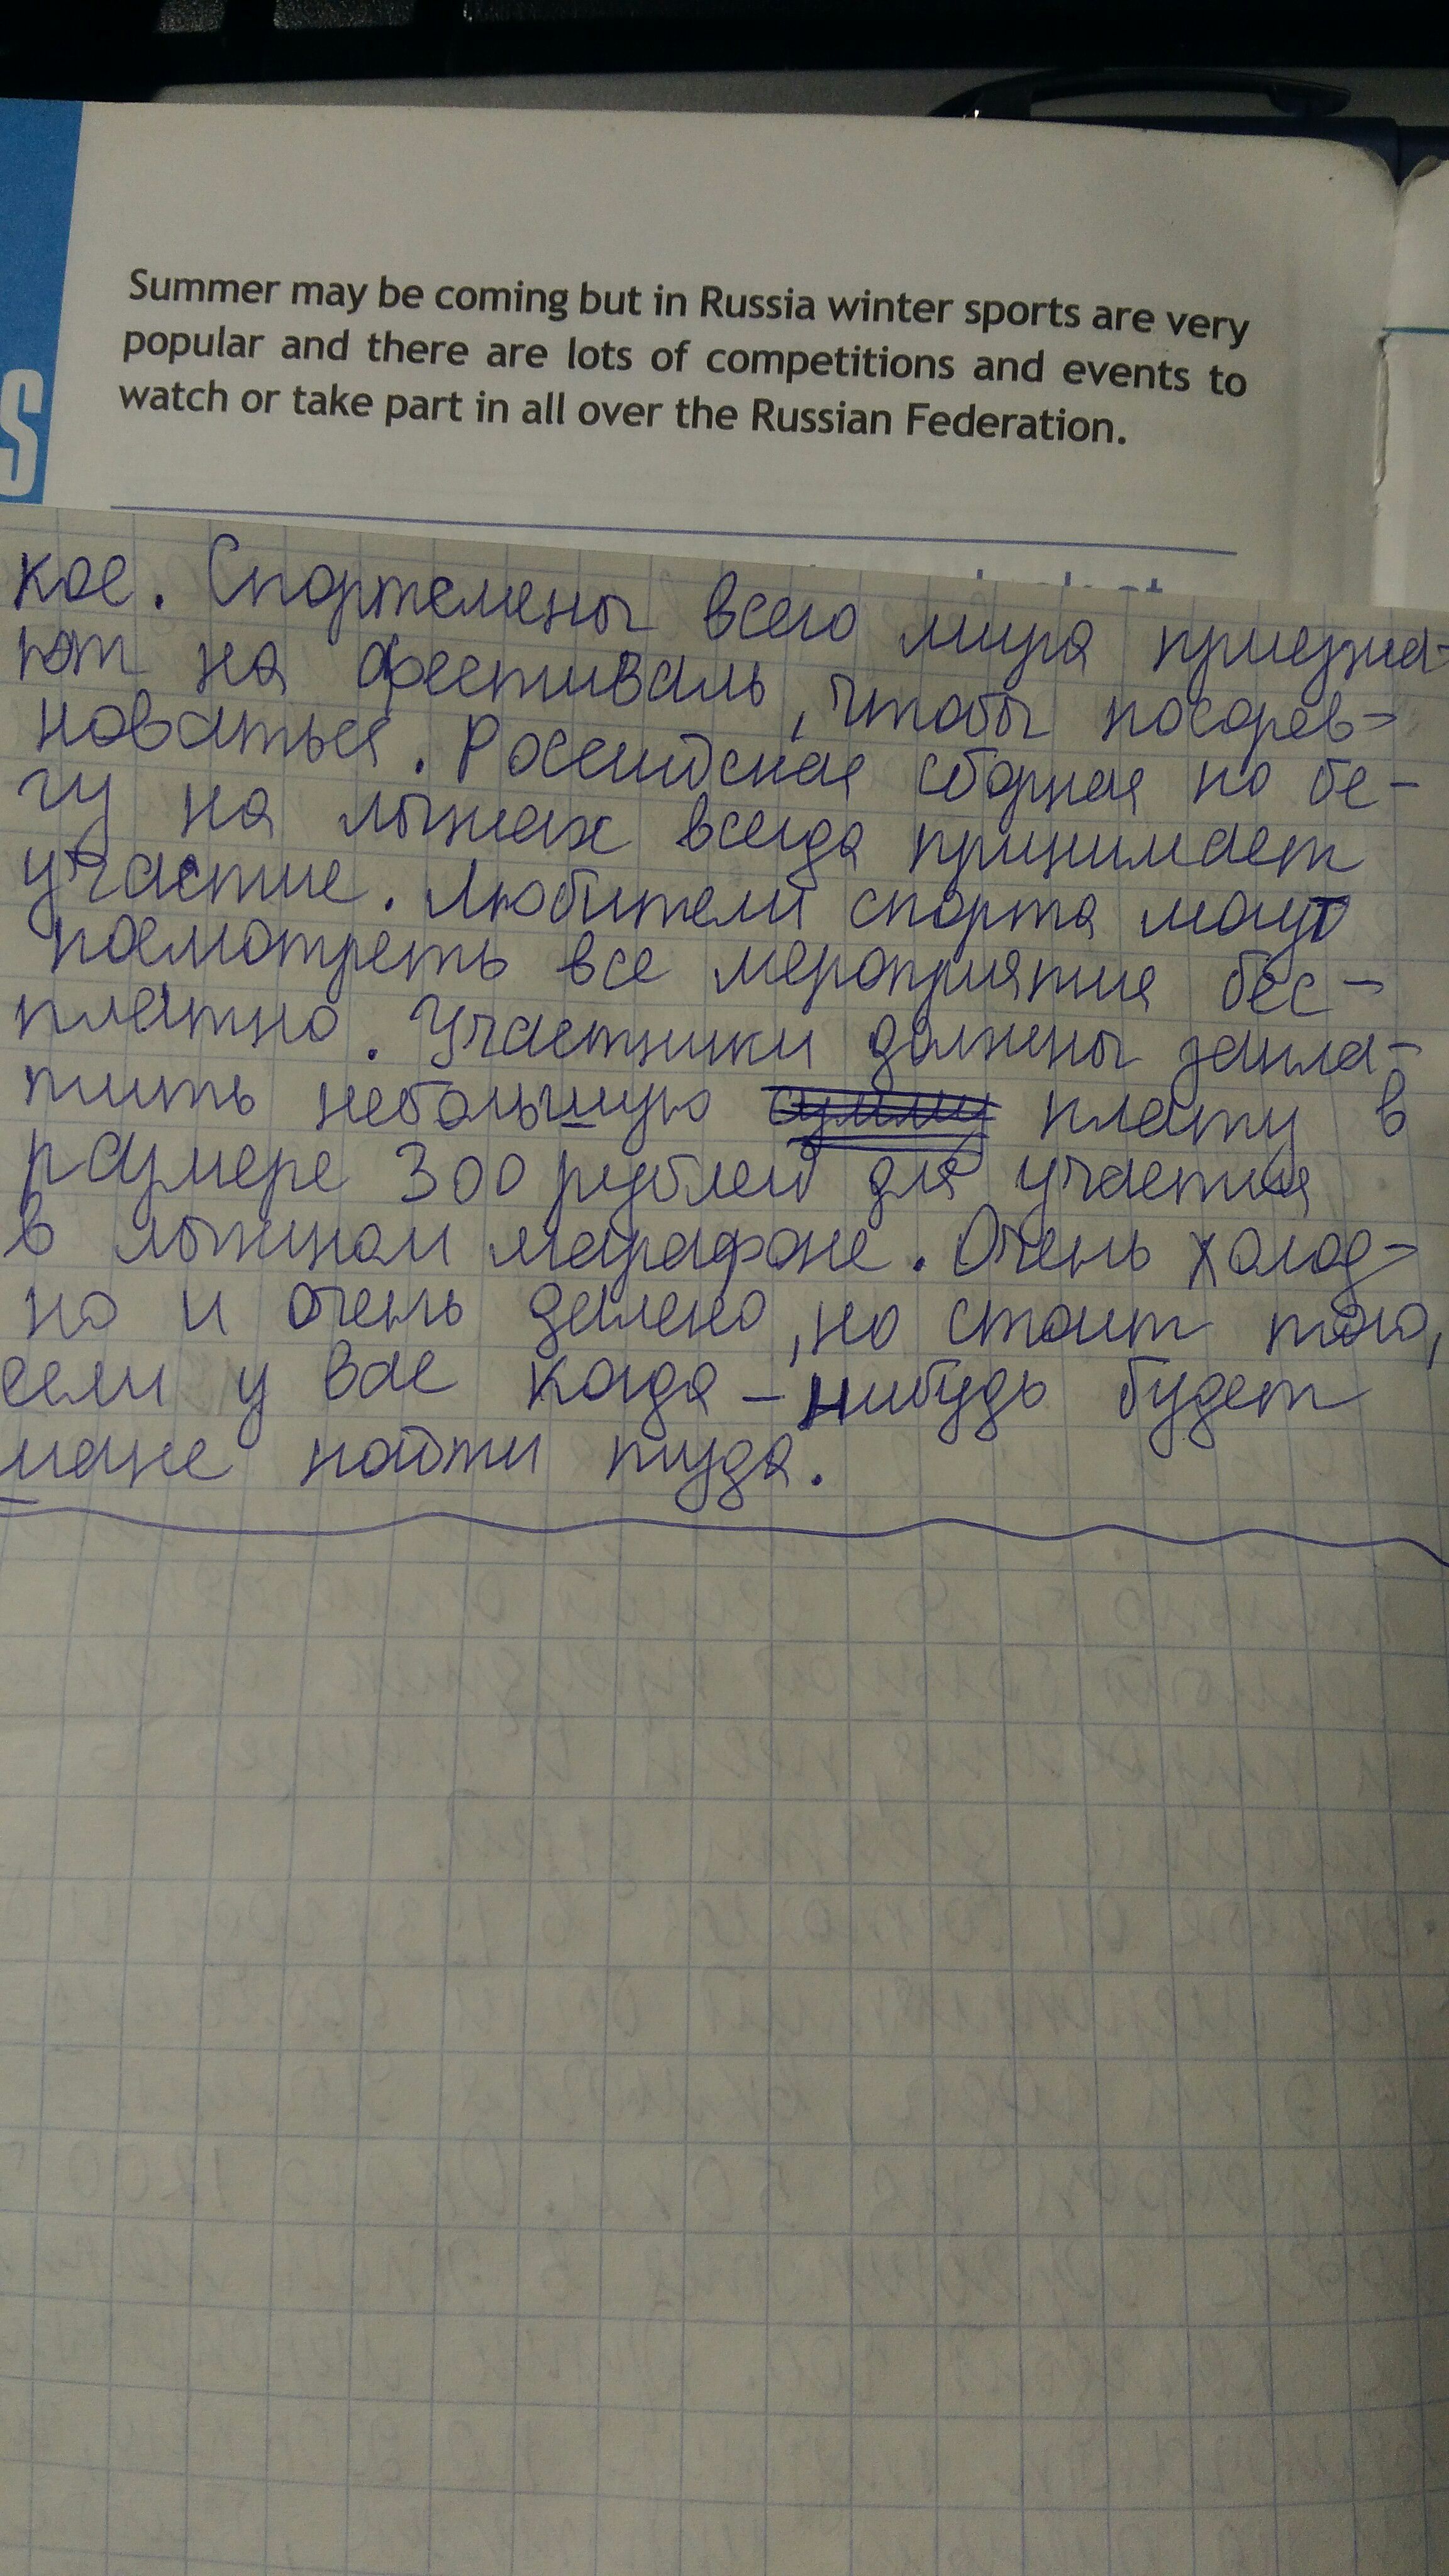 S
Summer may be coming but in Russia winter sports are very
popular and there are lots of competitions and events to
watch or take part in all over the Russian Federation.
кое. Спортсмены всего мира приезжа-
ют на фестиваль, чтобы посорев-
новаться. Российская сборная по бе-
гу на лыжах всегда принимает
участие. Любители спорта могут
посмотреть все мероприятия бес-
платно. Участники должны запла-
тить небольшую плату в
размере 300 рублей для участия
в лыжном марафоне. Очень холод-
но и очень далеко, но стоит того,
если у вас когда-нибудь будет
шанс пойти туда.